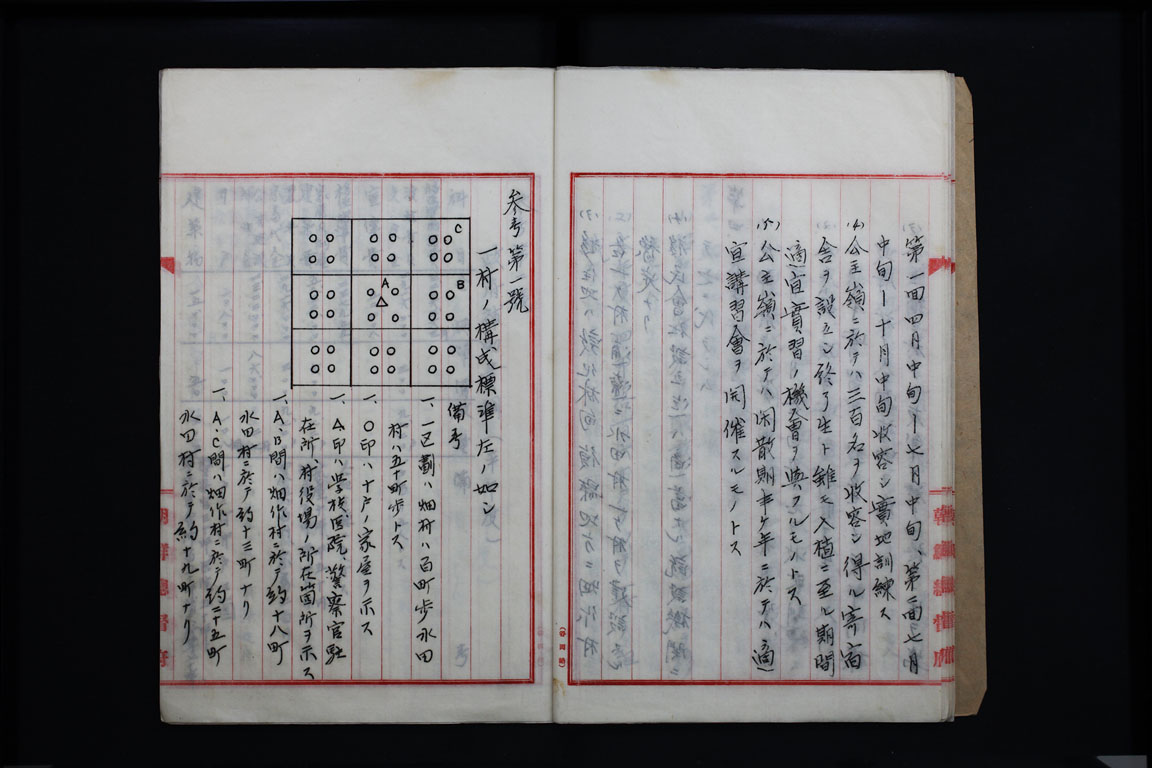 第一回四月中旬ー七月中旬、第二回七月
中旬ー十月中旬收容シ實地訓練ス
(4)公主嶺ニ於テハ三百名ヲ收容シ得ル寄宿
舎ヲ設ケシ終了生ト雖モ入植ニ至ル期間
適宜實習ノ機會ヲ與フルモノトス
(5)公主嶺ニ於テハ閑散期半ケ年ニ於テハ適
宜講習會ヲ開催スルモノトス
参考第一號
一村ノ構成標準左ノ如シ
C
B
A
備考
一、一区劃ハ畑村ハ百町歩水田
村ハ五十町歩トス
一、〇印ハ十戸ノ家屋ヲ示ス
一、△印ハ学校医院、警察官駐
在所、村役場ノ所在箇所ヲ示ス
一、A、B間ハ畑作村ニ於テ約十八町
水田村ニ於テ約十三町ナリ
一、A、C間ハ畑作村ニ於テ約二十五町
水田村ニ於テ約十九町ナリ